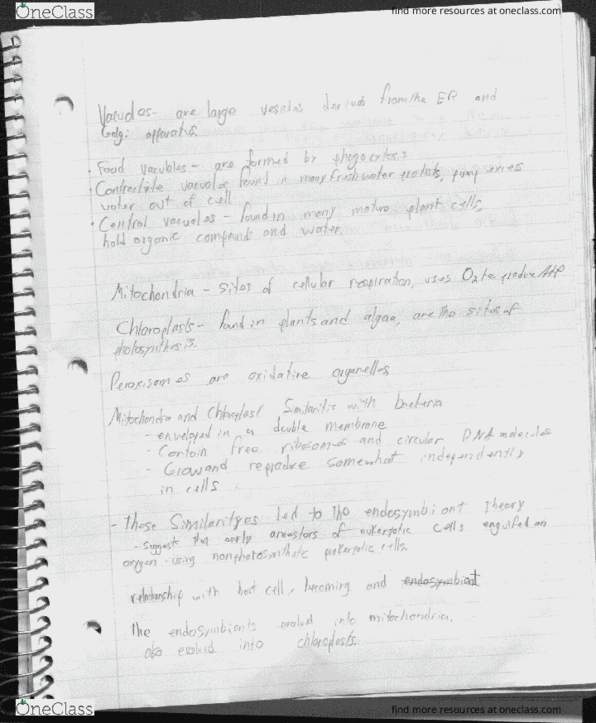 OneClass
find more resources at oneclass.com
Vacuoles- are large vesicles derived from the ER and
Golgi apparatus.
· Food vacuoles - are formed by phagocytosis
· Contractile vacuoles found in many freshwater protists, pump excess
water out of cell
· Central vacuoles - found in many mature plant cells,
hold organic compounds and water.
Mitochondria - sites of cellular respiration, uses O2 to produce ATP
Chloroplasts - found in plants and algae, are the sites of
photosynthesis.
Peroxisomes are oxidative organelles
Mitochondria and Chloroplast Similarities with bacteria
- enveloped in a double membrane
- Contain free ribosomes and circular DNA molecules
- Grow and reproduce somewhat independently
in cells
- These Similarityes led to the endosymbiont Theory
- Suggest that early ancestors of eukaryotic cells engulfed an
oxygen-using nonphotosynthetic prokaryotic cells.
relationship with host cell, becoming and endosymbiont
The endosymbionts evolved into mitochondria,
also evolved into chloroplasts.
OneClass
find more resources at oneclass.com